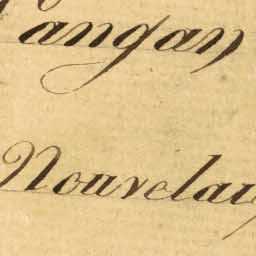 angan
Nouvelau